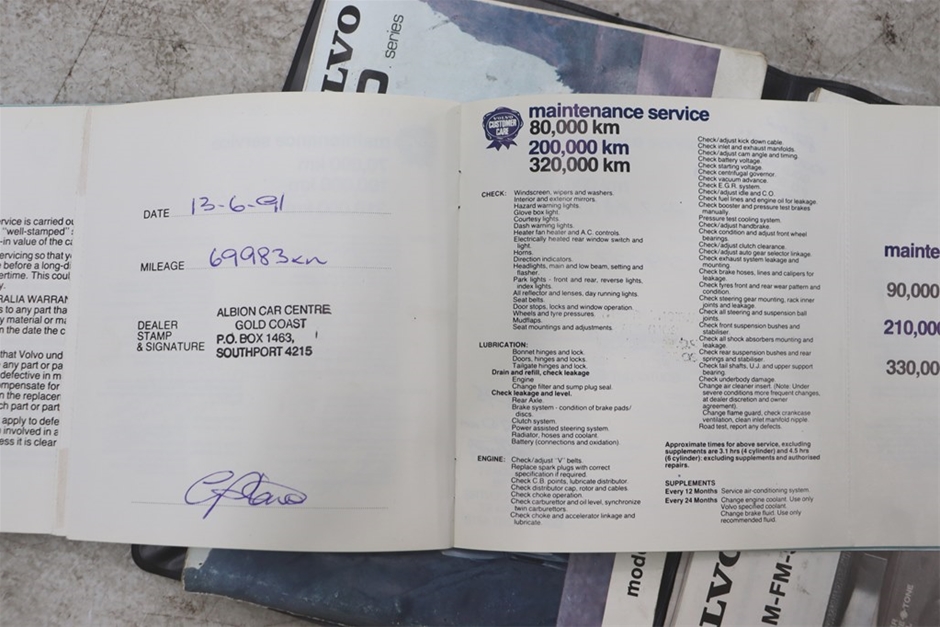 VOLVO
series
rvice is carried ou
"well-stamped"
-in value of the ca
ervicing so that yo
before a long-di
ertime. This coul
RALIA WARRAN
s to any part tha
y material or ma
n the date the c
that Volvo und
any part or pa
defective in m
ompensate for
n the replacen
ch part or part
apply to defe
involved in a
ess it is clear
DATE 13-6-91
MILEAGE 69983km
DEALER
STAMP
& SIGNATURE
ALBION CAR CENTRE
GOLD COAST
P.O. BOX 1463,
SOUTHPORT 4215
VOLVO
CUSTOMER
CARE
maintenance service
80,000 km
200,000 km
320,000 km
CHECK: Windscreen, wipers and washers.
Interior and exterior mirrors.
Hazard warning lights.
Glove box light.
Courtesy lights.
Dash warning lights.
Heater fan heater and A.C. controls.
Electrically heated rear window switch and
light.
Horns.
Direction indicators.
Headlights, main and low beam, setting and
flasher.
Park lights - front and rear, reverse lights,
index lights.
All reflector and lenses, day running lights.
Seat belts.
Door stops, locks and window operation.
Wheels and tyre pressures.
Mudflaps.
Seat mounting and adjustments.
LUBRICATION:
Bonnet hinges and lock.
Doors, hinges and locks.
Tailgate hinges and lock.
Drain and refill, check leakage
Engine
Change filter and sump plug seal.
Check leakage and level.
Rear Axle.
Brake system - condition of brake pads/
discs.
Clutch system.
Power assisted steering system.
Radiator, hoses and coolant.
Battery (connections and oxidation).
ENGINE: Check/adjust "V" belts.
Replace spark plugs with correct
specification if required.
Check C.B. points, lubricate distributor.
Check distributor cap, rotor and cables.
Check choke operation.
Check carburettor and oil level, synchronize
twin carburettors.
Check choke and accelerator linkage and
lubricate.
Check/adjust kick down cable.
Check inlet and exhaust manifolds.
Check/adjust cam angle and timing.
Check battery voltage.
Check starting voltage.
Check centrifugal governor.
Check vacuum advance.
Check E.G.R. system.
Check/adjust idle and C.O.
Check fuel lines and engine oil for leakage.
Check booster and pressure test brakes
manually.
Pressure test cooling system.
Check/adjust handbrake.
Check condition and adjust front wheel
bearings.
Check/adjust clutch clearance.
Check/adjust auto gear selector linkage.
Check exhaust system leakage and
mounting.
Check brake hoses, lines and calipers for
leakage.
Check tyres front and rear wear pattern and
condition.
Check steering gear mounting, rack inner
joints and leakage.
Check all steering and suspension ball
joints.
Check front suspension bushes and
stabiliser.
Check all shock absorbers mounting and
leakage.
Check rear suspension bushes and rear
springs and stabiliser.
Check tail shafts, U.J. and upper support
bearing.
Check underbody damage.
Change air cleaner insert. (Note: Under
severe conditions more frequent changes,
at dealer discretion and owner
agreement).
Change flame guard, check crankcase
ventilation, clean inlet manifold nipple.
Road test, report any defects.
Approximate times for above service, excluding
supplements are 3.1 hrs (4 cylinder) and 4.5 hrs
(6 cylinder): excluding supplements and authorised
repairs.
SUPPLEMENTS
Every 12 Months Service air-conditioning system.
Every 24 Months Change engine coolant. Use only
Volvo specified coolant.
Change brake fluid. Use only
recommended fluid.
mainte
90,000
210,000
330,00
mod
VOLVO
M-FM-
TONE